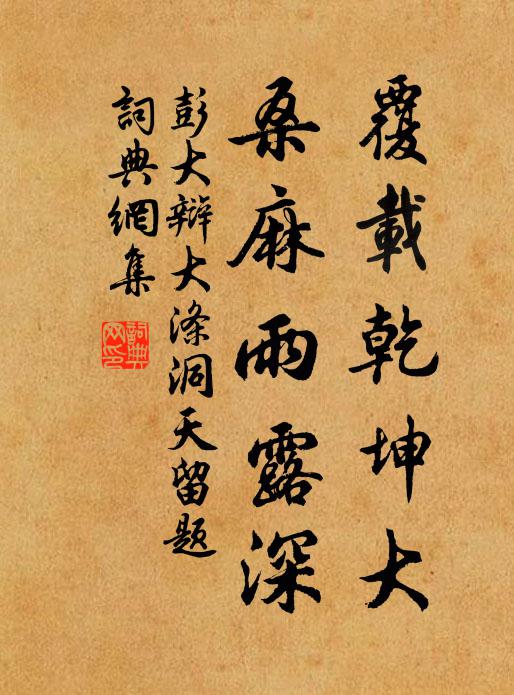 覆載乾坤大
桑麻雨露深
彭大辯大滌洞天留題
詞典網集
詞典
网印